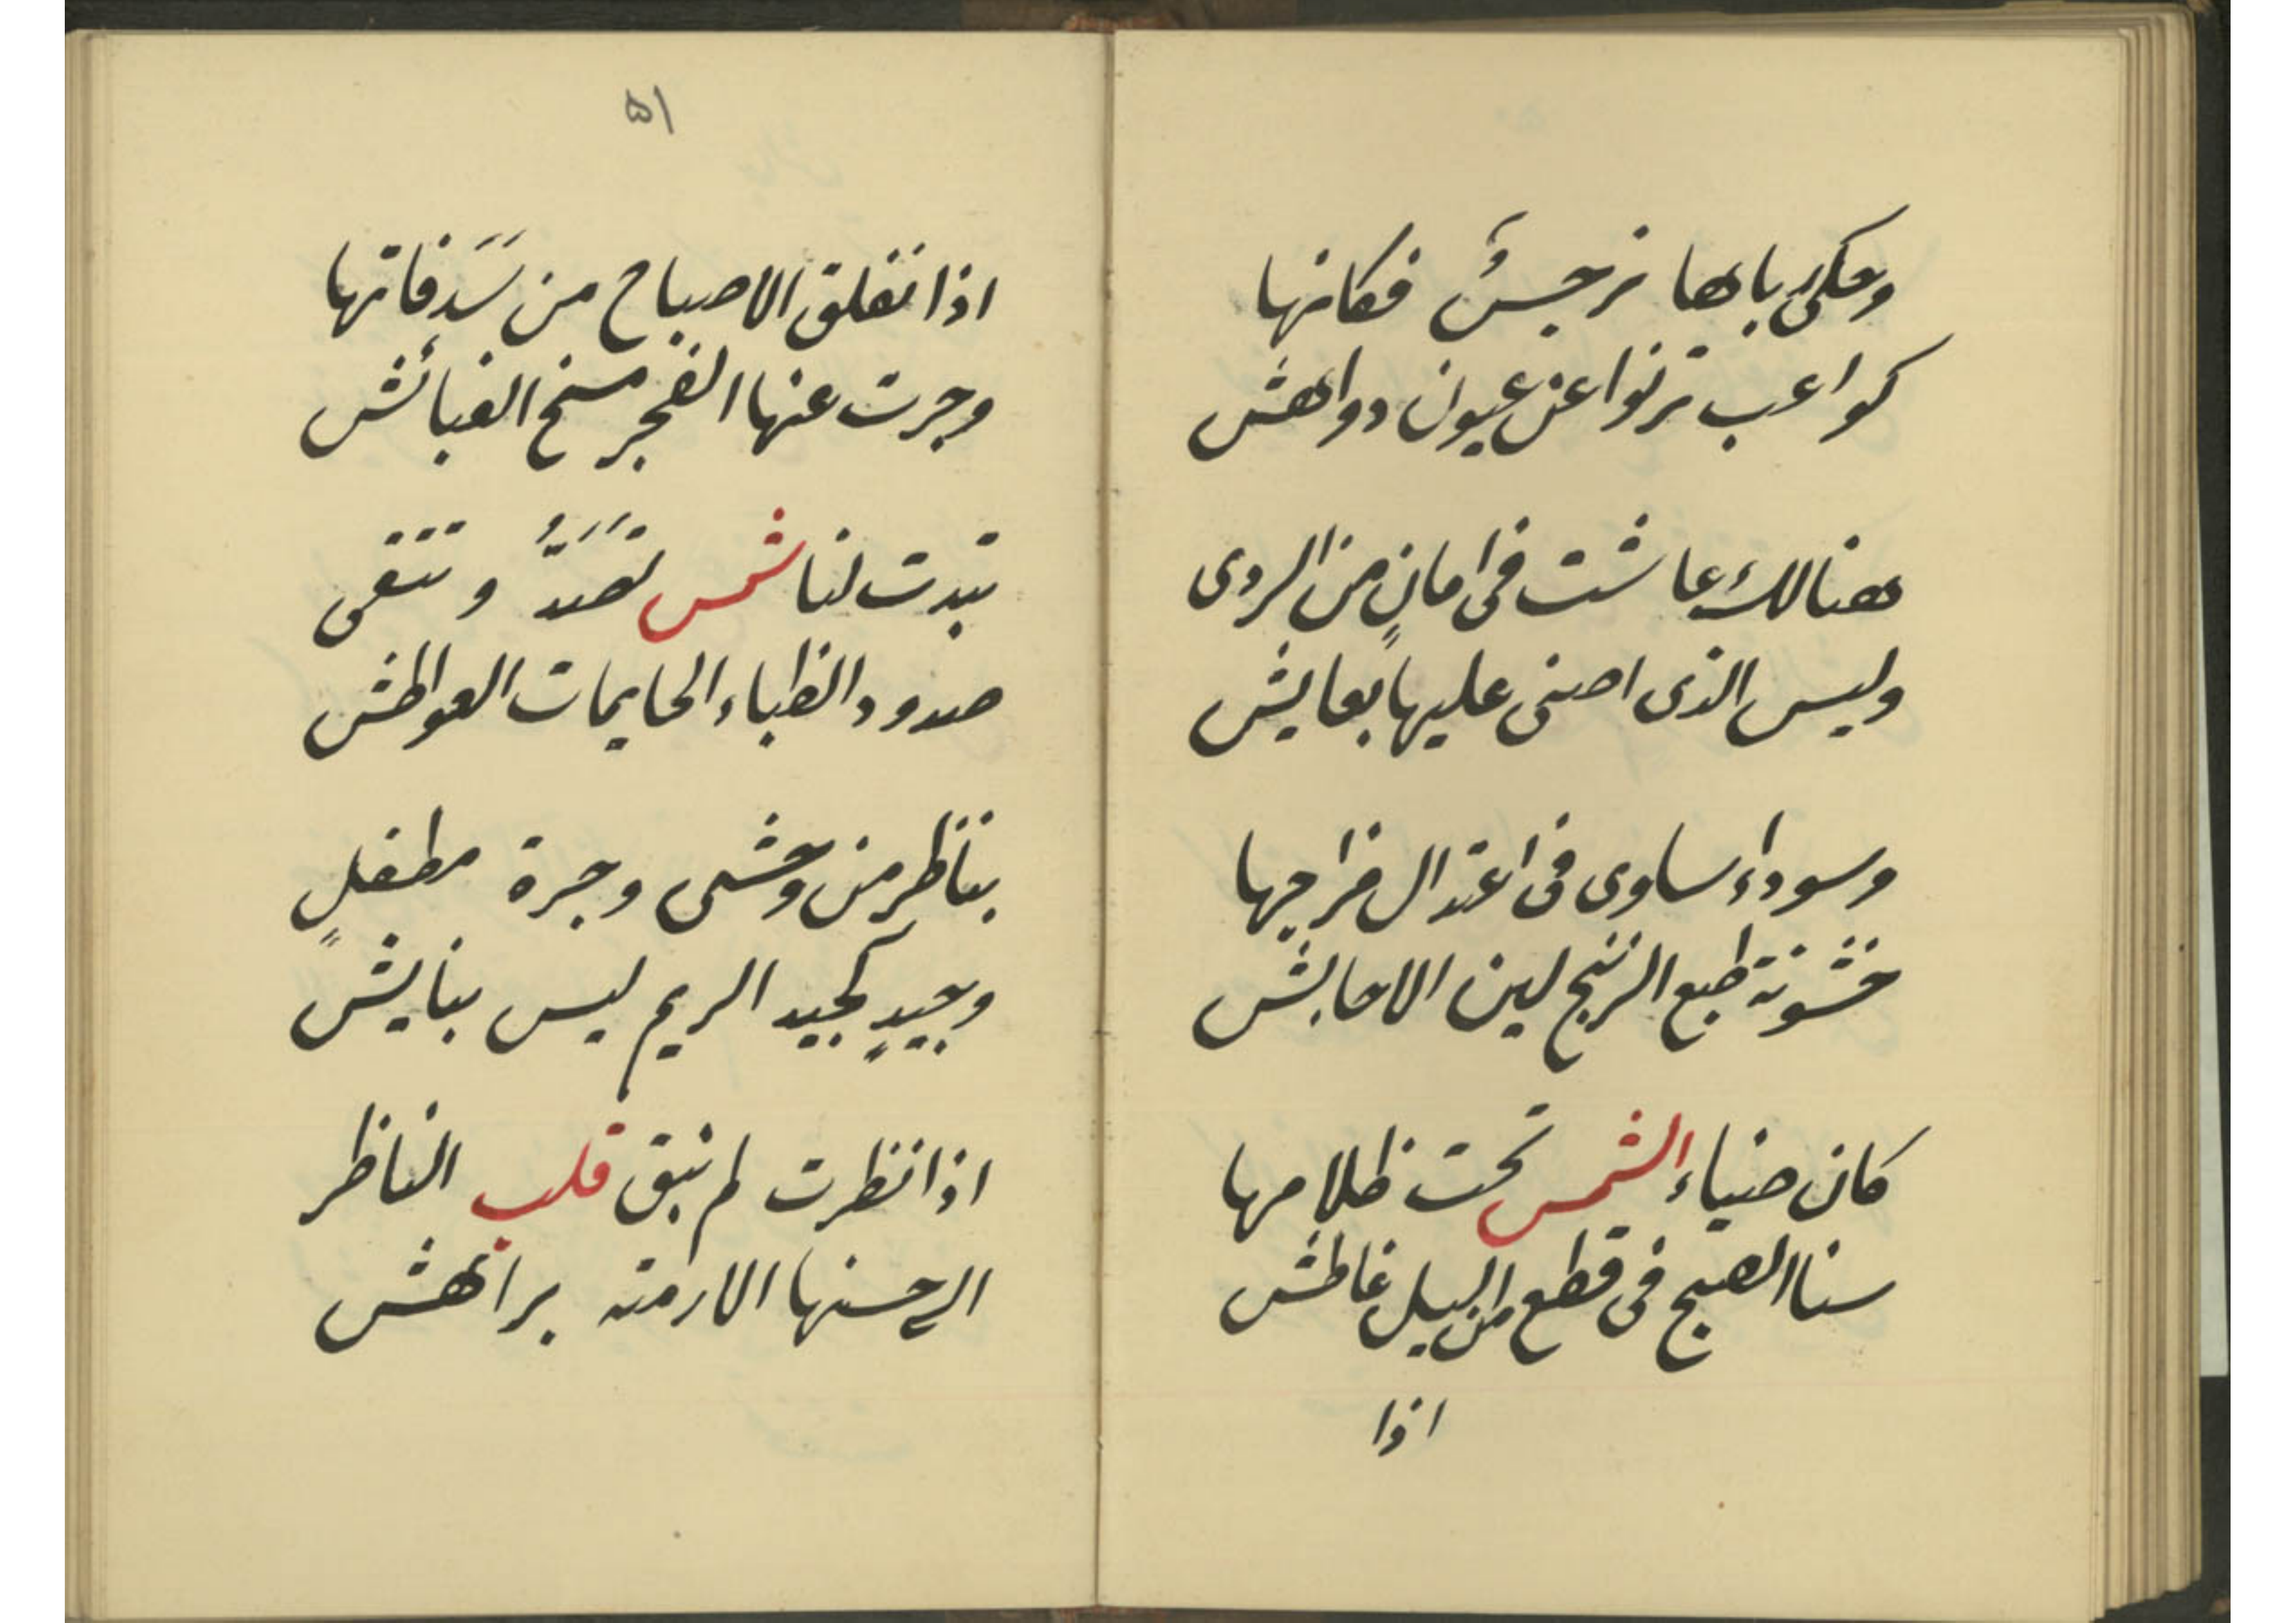 وحكى بابها نرجسٌ فكانها
كواعب ترنوا عن عيون دواهش
هنالك عاشت فى امانٍ من الردى
وليس الذى اضحى عليها بعايش
وسوداء ساوى فى اعتدال مزاجها
خشونة طبع الزنج لين الاحابش
كان ضياء الشمس تحت ظلامها
سنا الصبح فى قطع من اليل غاطش
اذا
٥١
اذا نفلق الاصباح من سَدَفاتها
وجرت عنها الفجر مسخ الغبائش
تبدت لنا شمس تَصَدُّ وتتقى
صدود الظباء الحايمات العواطش
بناظر من وحشى وجرة مطفلٍ
وجيدٍ كجيد الريم ليس بنايش
اذا نظرت لم تبق قلب الناظر
الى حسنها الا رمته براهش